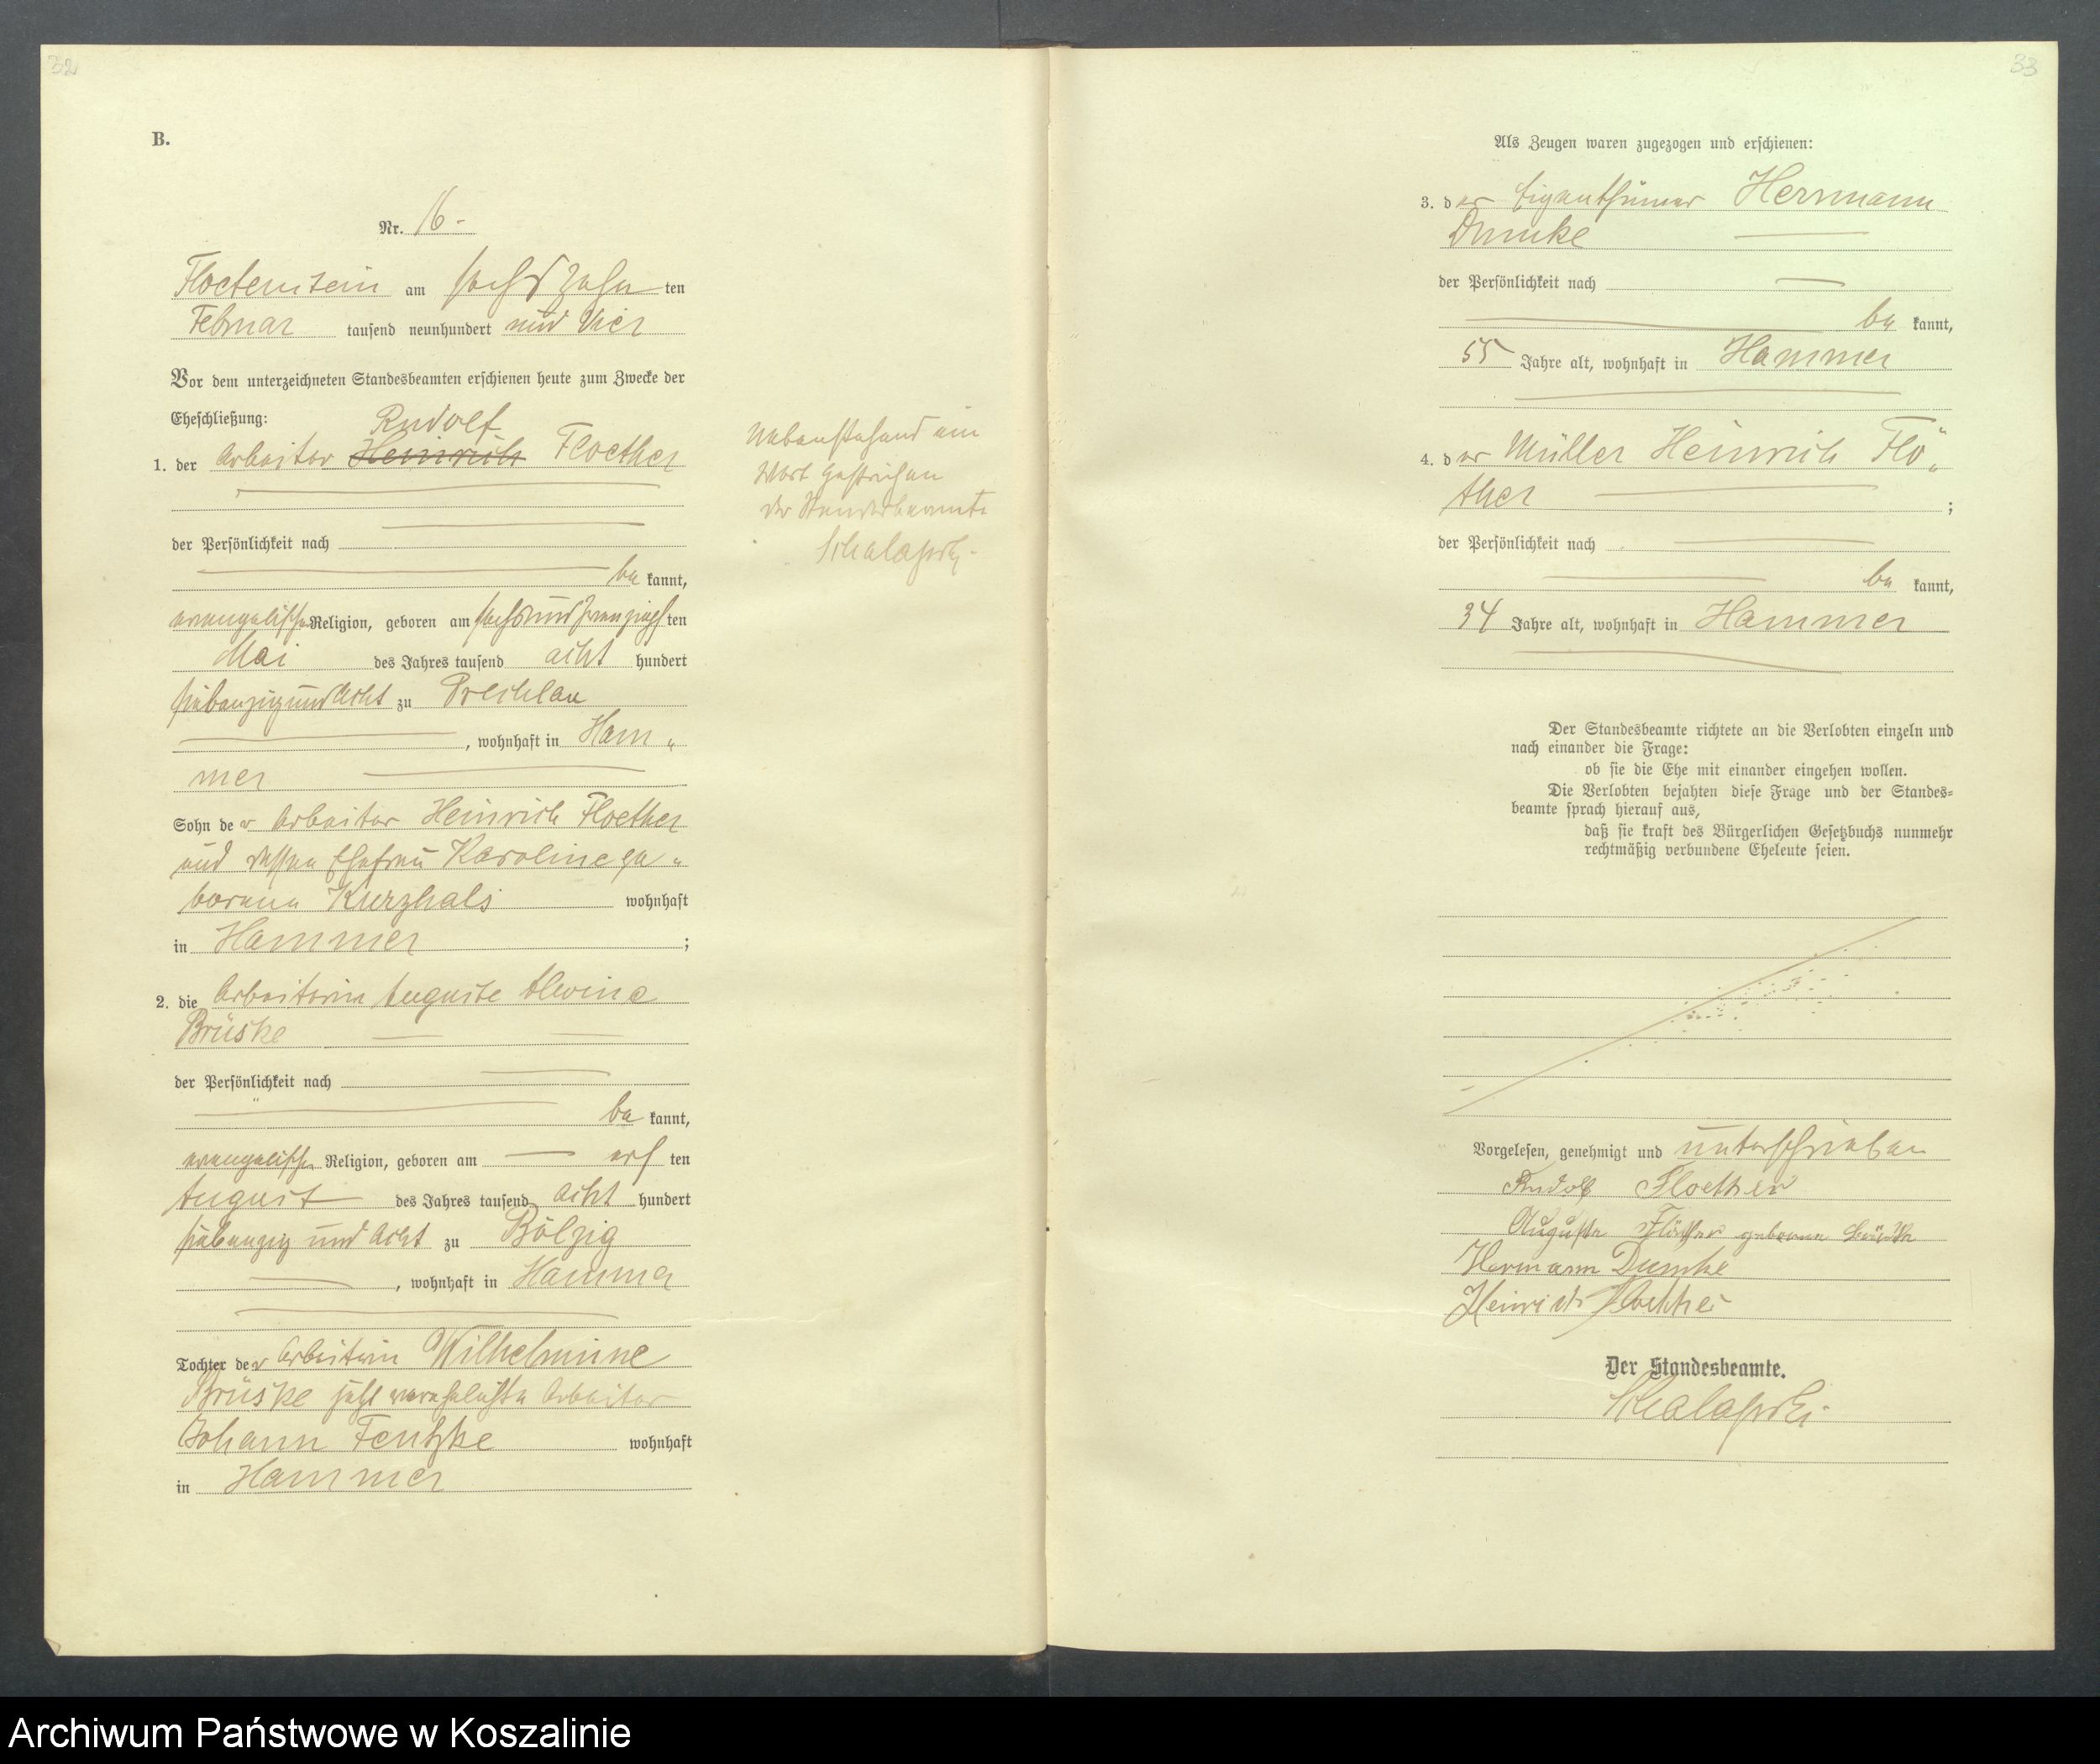 32
B.
Nr. 16
Floetenstein am sechszehn ten
Februar tausend neunhundert und vier
Vor dem unterzeichneten Standesbeamten erschienen heute zum Zwecke der
Eheschließung:
Rudolf
1. der Arbeiter Heinrich Floether
der Persönlichkeit nach
be kannt,
evangelischer Religion, geboren am sechsundzwanzigsten
Mai des Jahres tausend acht hundert
siebenzig und acht zu Prechlau
, wohnhaft in Ham„
mer
Sohn der Arbeiter Heinrich Floether
und dessen Ehefrau Karoline ge„
borene Kurzhals wohnhaft
in Hammer ;
2. die Arbeiterin Auguste Alwine
Brüske
der Persönlichkeit nach
be kannt,
evangelischer Religion, geboren am ten
August des Jahres tausend acht hundert
siebenzig und acht zu Bölzig
, wohnhaft in Hammer
Tochter der Arbeiterin Wilhelmine
Brüske jetzt verehelichte Arbeiter
Johann Fentzke wohnhaft
in Hammer
Nebenstehend ein
Wort gestrichen
Der Standesbeamte
33
Als Zeugen waren zugezogen und erschienen:
3. der Eigenthümer Herrmann
Dumke
der Persönlichkeit nach
be kannt,
55 Jahre alt, wohnhaft in Hammer
4. der Müller Heinrich Flö„
ther ;
der Persönlichkeit nach
be kannt,
34 Jahre alt, wohnhaft in Hammer
Der Standesbeamte richtete an die Verlobten einzeln und
nach einander die Frage:
ob sie die Ehe mit einander eingehen wollen.
Die Verlobten bejahten diese Frage und der Standes=
beamte sprach hierauf aus,
daß sie kraft des Bürgerlichen Gesetzbuchs nunmehr
rechtmäßig verbundene Eheleute seien.
Vorgelesen, genehmigt und unterschrieben
Rudolf Floether
Auguste Flöther geborene Brüske
Hermann Dumke
Heinrich Floether
Der Standesbeamte.
Archiwum Państwowe w Koszalinie